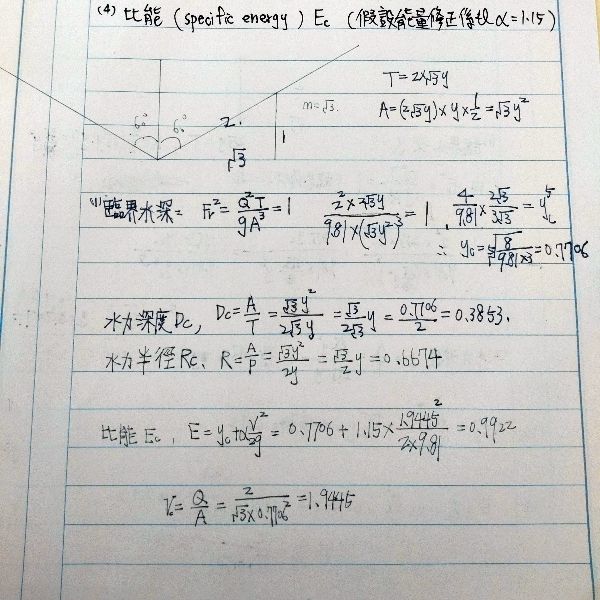 (4) 比能 (specific energy) Ec (假設能量修正係數 α=1.15)
60° 60° 2. 1 √3
m=√3.
T=2×√3y
A=(2√3y)×y×1/2=√3y²
(1) 臨界水深= Fr²=Q²T/gA³=1 2²×2√3y/9.81×(√3y²)³=1, 4/9.81×2√3/3√3=yc⁵
∴ yc=⁵√8/9.81×3=0.7706
水力深度Dc, Dc=A/T=√3y²/2√3y=√3/2√3y=0.7706/2=0.3853.
水力半徑Rc、R=A/P=√3y²/2y=√3/2y=0.6674
比能 Ec, E=yc+αV²/2g=0.7706+1.15×1.9445²/2×9.81=0.9922
Vc=Q/A=2/√3×0.7706²=1.9445